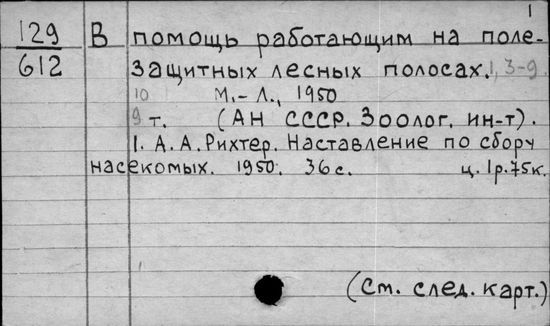 1
129 В помощь работающим на поле-
612 защитных лесных полосах. 1, 3-9
10 М.-Л., 1950
9 т. (АН СССР. Зоолог. ин-т).
1. А. А. Рихтер. Наставление по сбору
насекомых. 1950. 36 с. ц. 1р.75к.
(См. след. карт.)